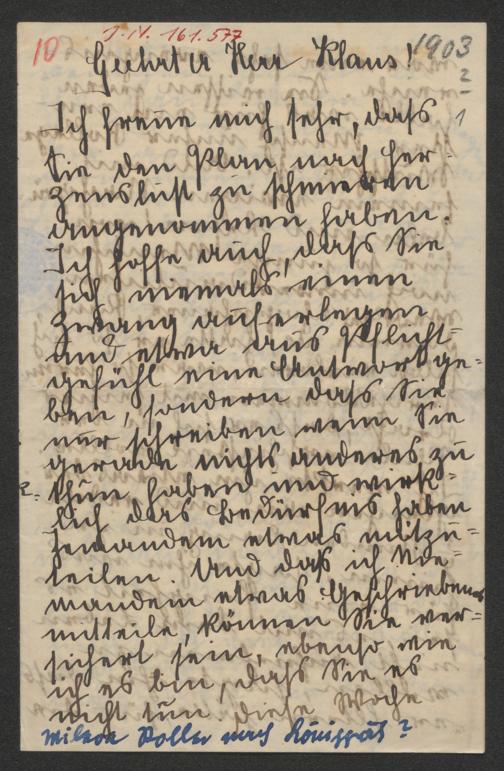 10
J.N. 161.577
1903
2
1
Geehrter Herr Klaus!
Ich freue mich sehr, dass
Sie den Plan nach Her-
zenslust zu schmieren
angenommen haben.
Ich hoffe auch, dass Sie
sich niemals einen
Zwang auferlegen
und etwa aus Pflicht-
gefühl eine Antwort ge-
ben, sondern dass Sie
nur schreiben wenn Sie
gerade nichts anderes zu
thun haben und wirk-
lich das Bedürfnis haben
jemandem etwas mitzu-
teilen. Und dass ich Nie-
mandem etwas Geschriebenes
mitteile, können Sie ver-
sichert sein, ebenso wie
ich es bin, dass Sie es
nicht tun. Diese Woche
Mileva Roller nach Königgrätz?